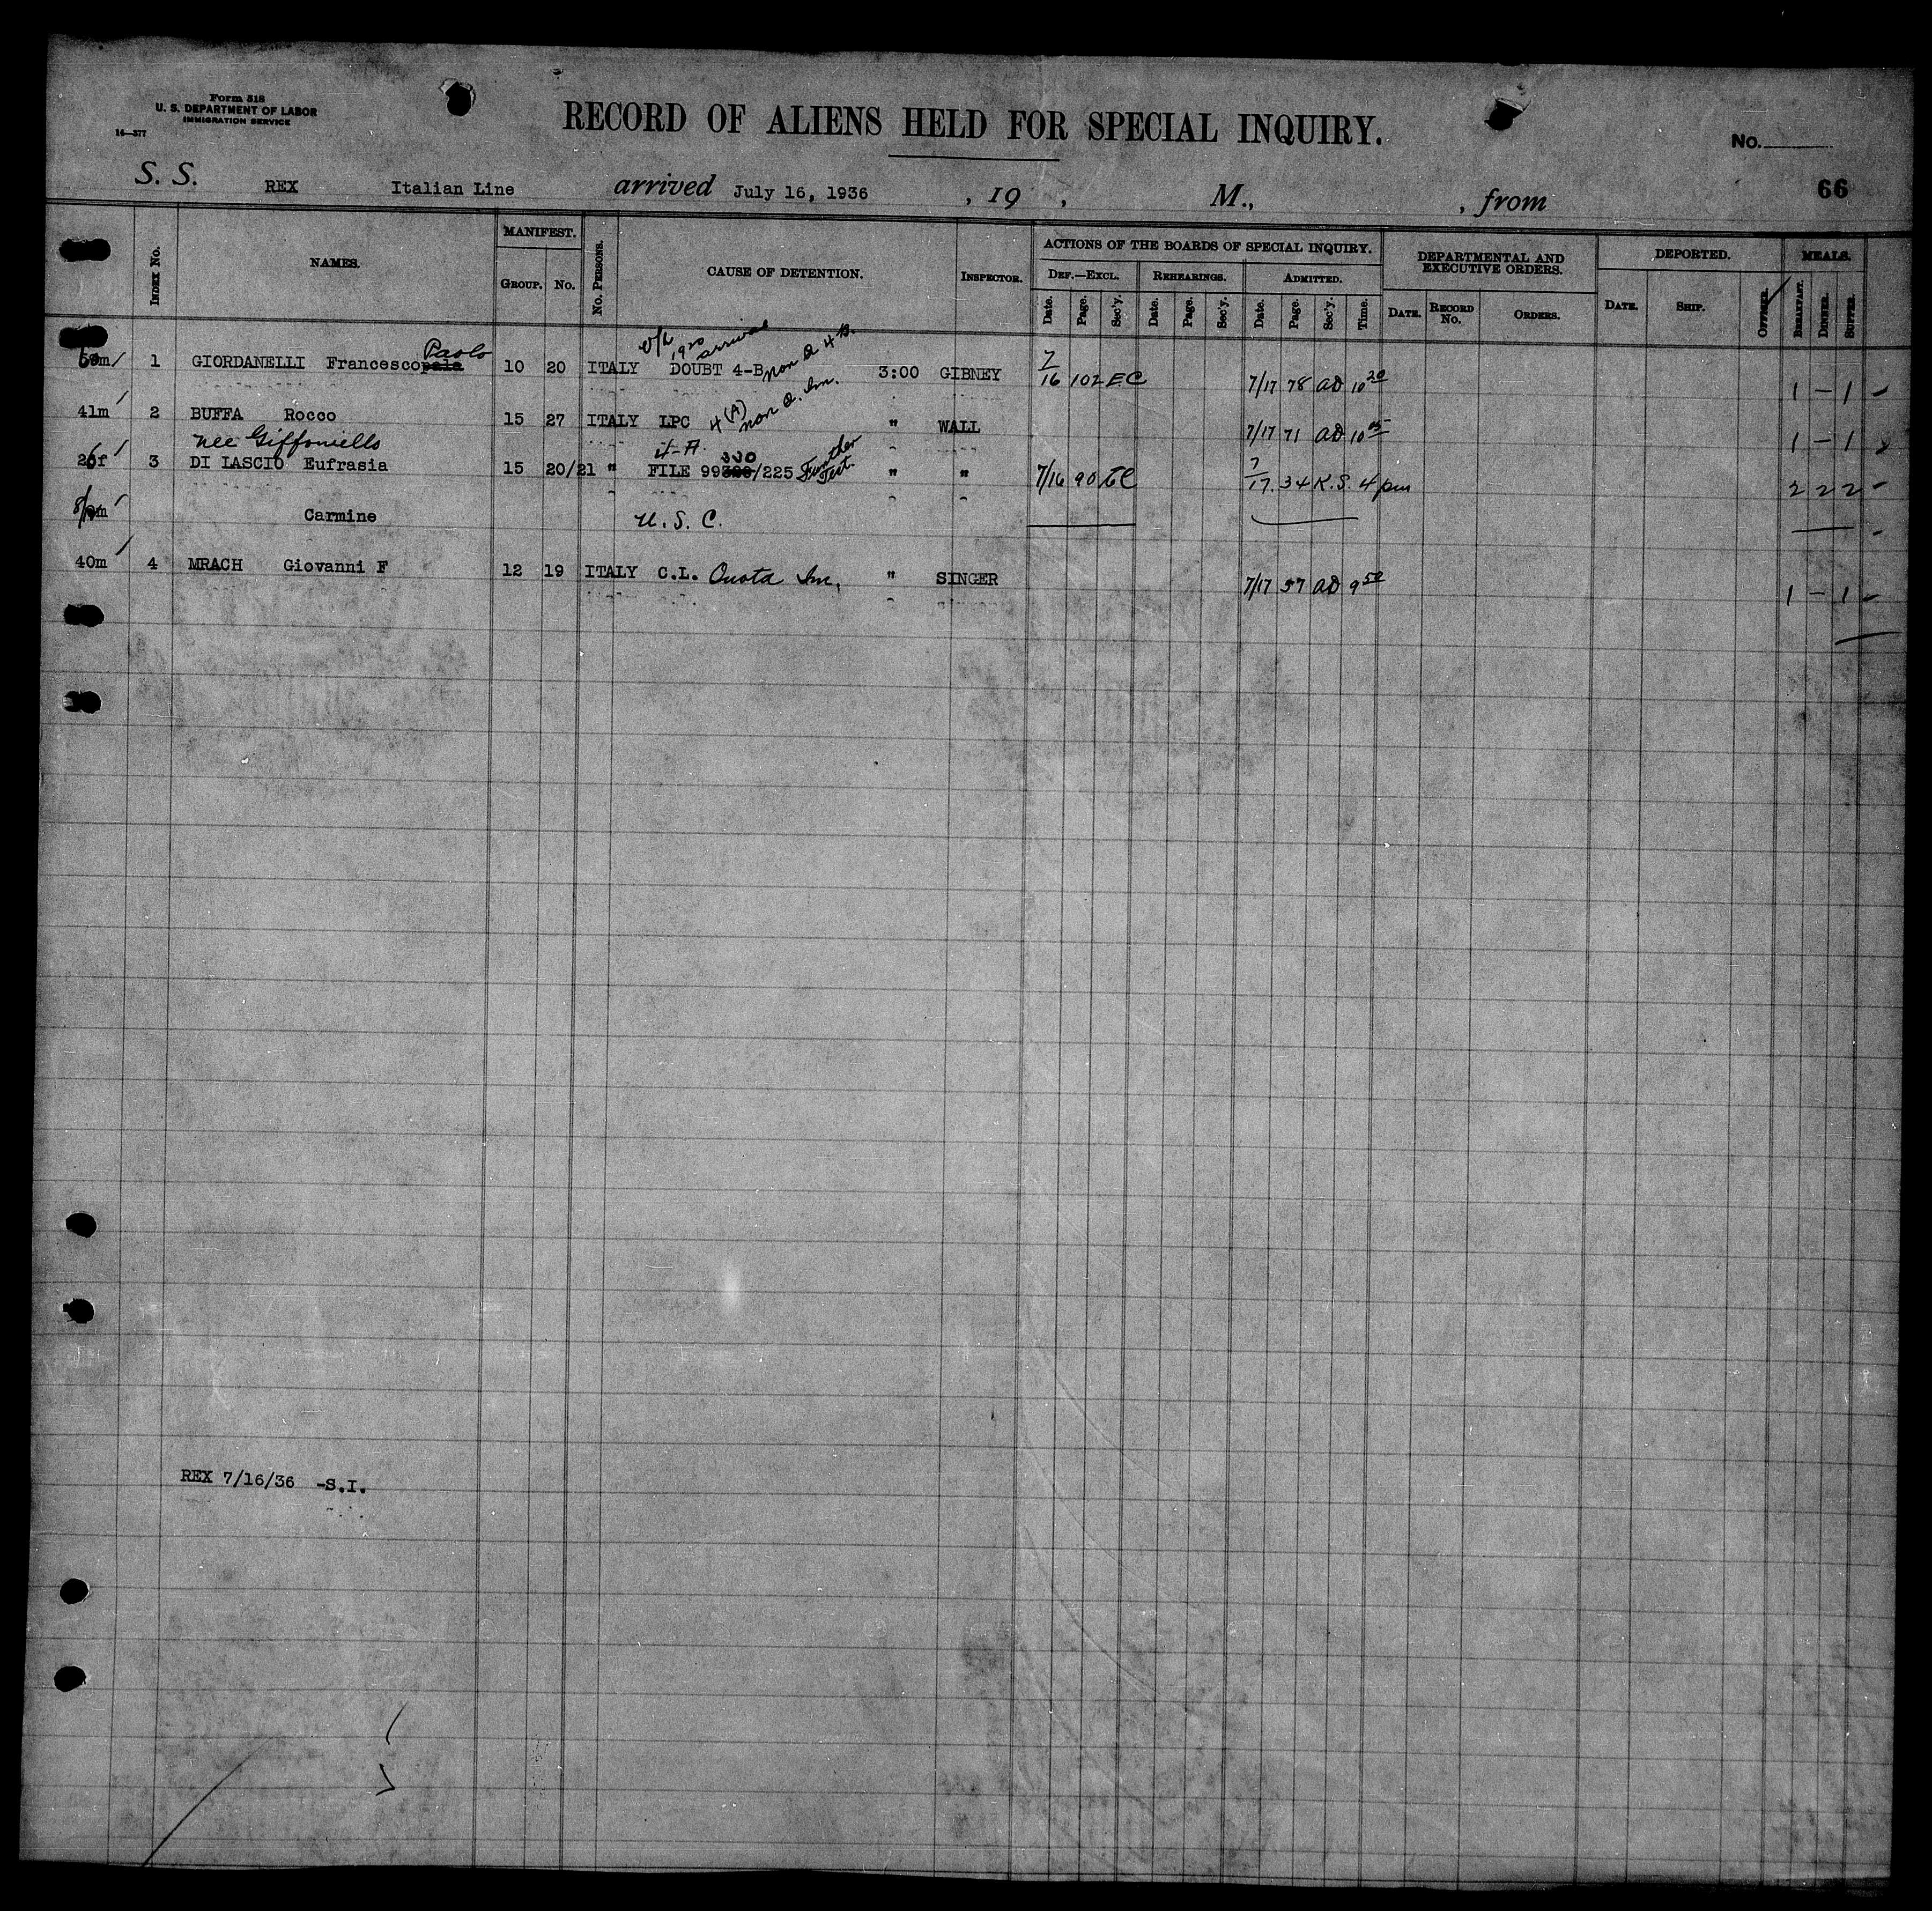 Form 518
U. S. DEPARTMENT OF LABOR
IMMIGRATION SERVICE
14—377
RECORD OF ALIENS HELD FOR SPECIAL INQUIRY.
No.
S. S. REX Italian Line arrived July 16, 1936 , 19 , M., , from 66
INDEX No. NAMES. MANIFEST. GROUP. No. No. PERSONS. CAUSE OF DETENTION. INSPECTOR. ACTIONS OF THE BOARDS OF SPECIAL INQUIRY. DEF.—EXCL. Date. Page. Sec'y. REHEARINGS. Date. Page. Sec'y. ADMITTED. Date. Page. Sec'y. Time. DEPARTMENTAL AND EXECUTIVE ORDERS. DATE. RECORD No. ORDERS. DEPORTED. DATE. SHIP. OFFICER. MEALS. BREAKFAST. DINNER. SUPPER.
Paolo 1920 arrival
1 GIORDANELLI Francesco 10 20 ITALY DOUBT 4-B non Q 4 B. 3:00 GIBNEY 7/16 102 EC 7/17 78 AD 10 20 1 — 1
41m 2 BUFFA Rocco 15 27 ITALY LPC 4 (A) non Q. Im. " WALL 7/17 71 AD 10 05 1 — 1
nee Giffoniello
3 DI LASCIO Eufrasia 15 20/21 " FILE 99 330 /225 Further Test. " " 7/16 90 EC 7/17 34 K.S. 4 pm 2 2 2
Carmine U. S. C.
40m 4 MRACH Giovanni F 12 19 ITALY C.L. Quota Im. " SINGER 7/17 57 AD 9 50 1 — 1
REX 7/16/36 -S.I.